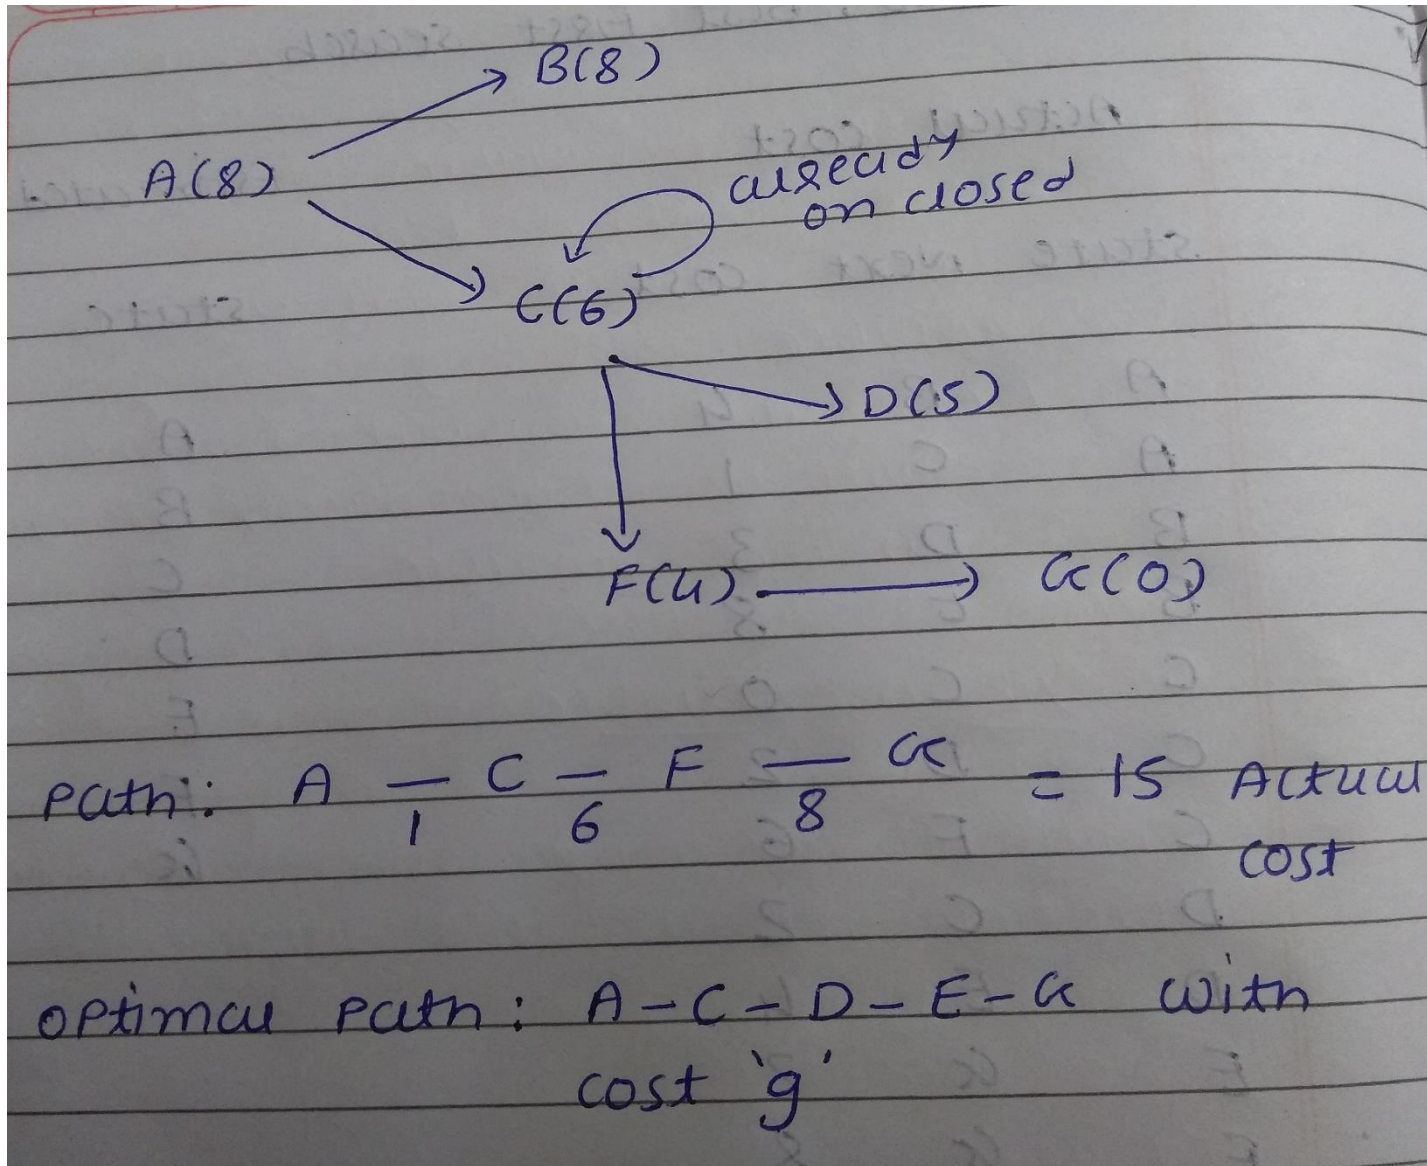 B(8)
A(8)
already
on closed
C(6)
D(5)
F(4)
G(0)
Path: A — C — F — G = 15 Actual
1 6 8
cost
optimal path: A - C - D - E - G with
cost 'g'